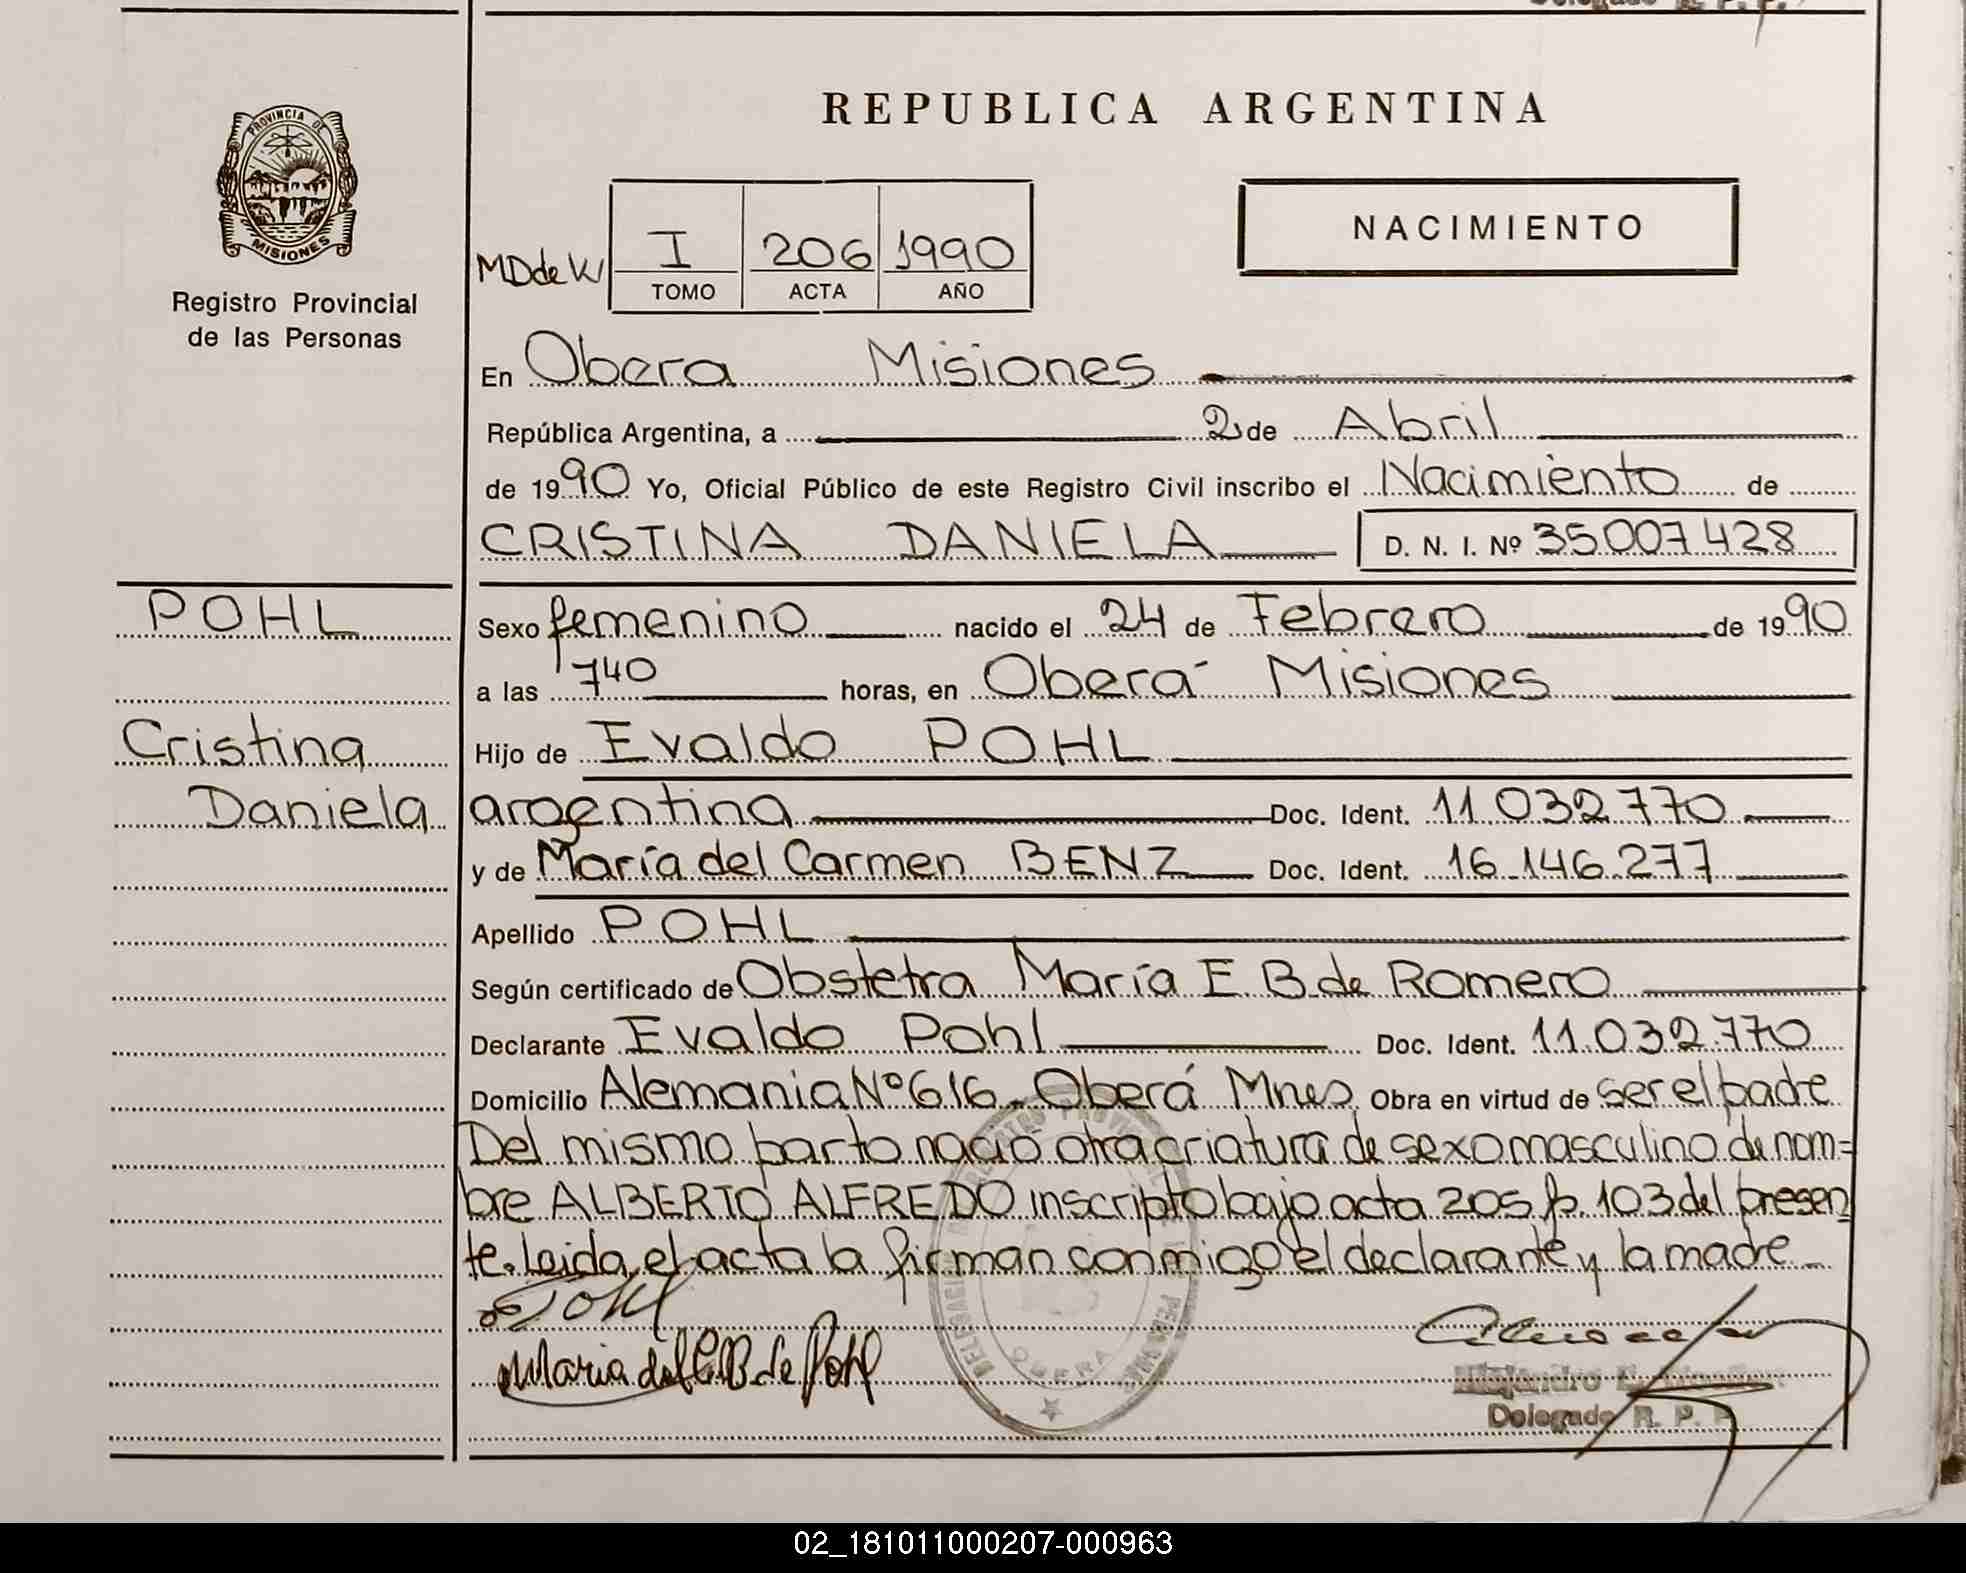 REPUBLICA ARGENTINA
PROVINCIA DE
MISIONES
Registro Provincial
de las Personas
NACIMIENTO
MD de W
I 206 1990
TOMO ACTA AÑO
En Obera Misiones
República Argentina, a 2 de Abril
de 1990 Yo, Oficial Público de este Registro Civil inscribo el Nacimiento de
CRISTINA DANIELA D. N. I. Nº 35.007.428
POHL
Cristina
Daniela
Sexo femenino nacido el 24 de Febrero de 1990
a las 740 horas, en Oberá Misiones
Hijo de Evaldo POHL
argentina Doc. Ident. 11.032.770
y de María del Carmen BENZ Doc. Ident. 16.146.277
Apellido POHL
Según certificado de Obstetra María E B de Romero
Declarante Evaldo Pohl Doc. Ident. 11.032.770
Domicilio Alemania Nº 616 - Oberá Mnes. Obra en virtud de ser el padre
Del mismo parto nació otra criatura de sexo masculino de nom=
bre ALBERTO ALFREDO inscripto bajo acta 205 fº 103 del presen
te. Leida el acta la firman conmigo el declarante y la madre
Maria del C B de Pohl
OBERA
Delegado R. P. P.
02_181011000207-000963